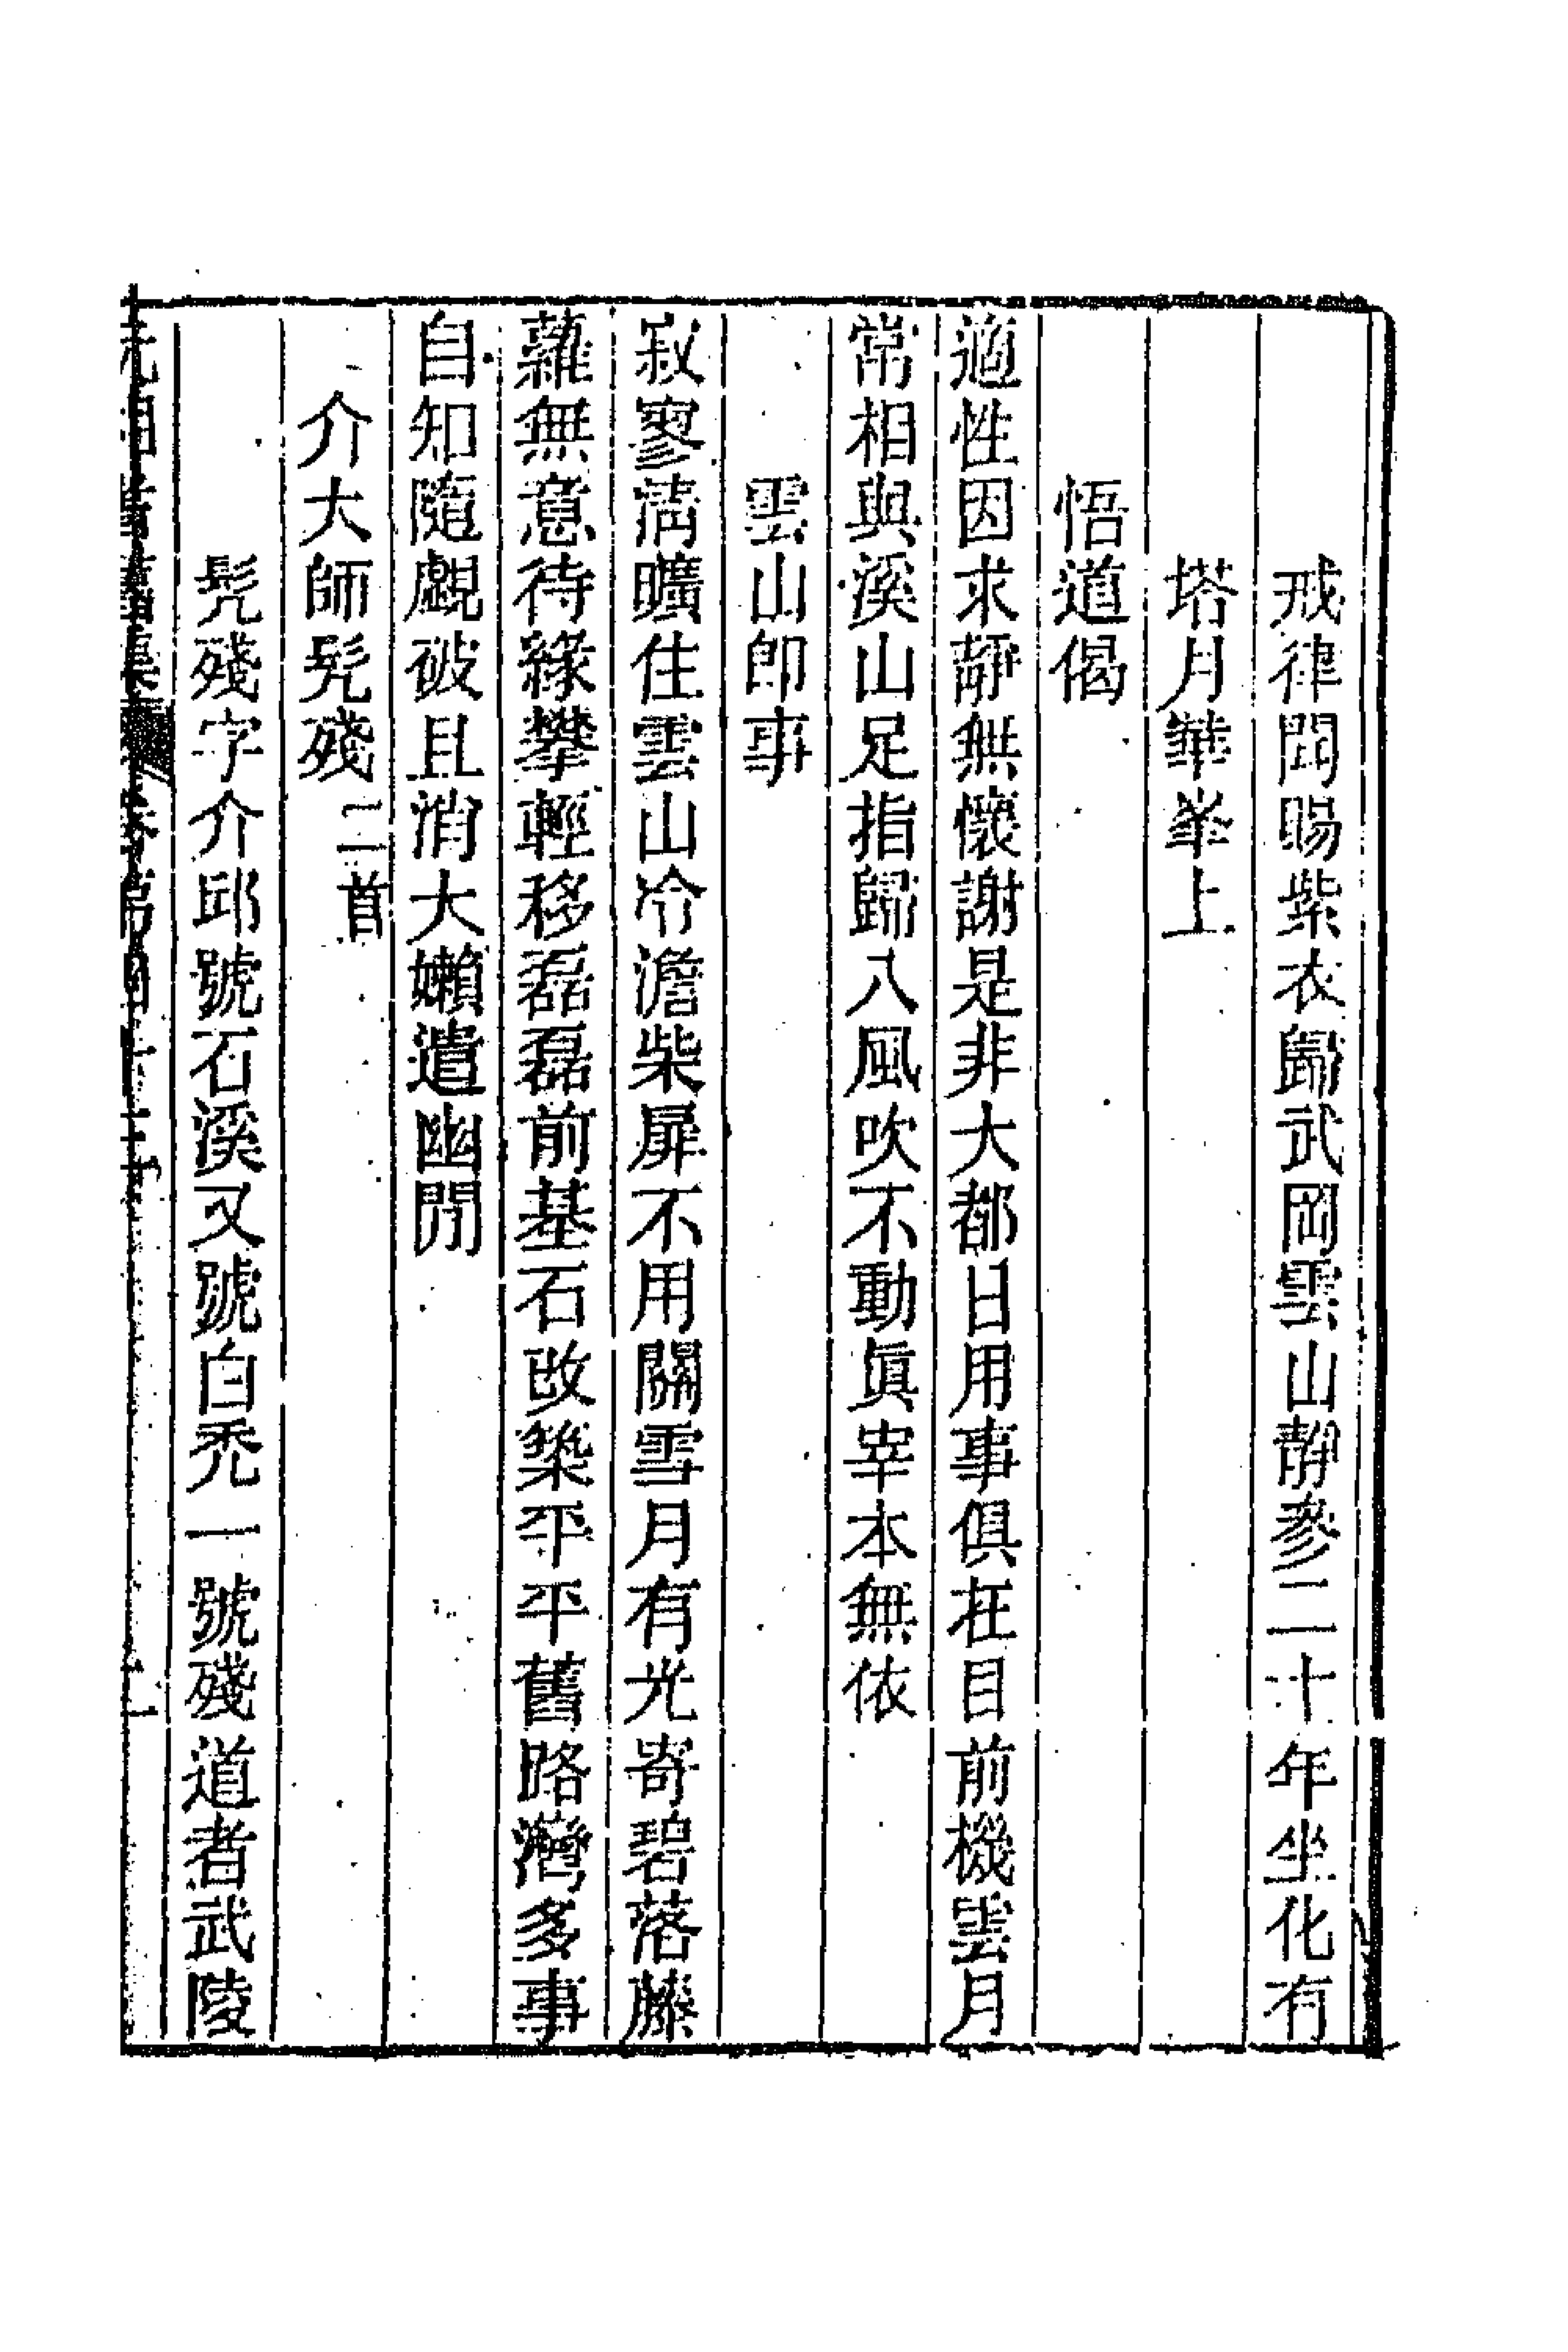 戒律賜紫衣歸武岡雲山靜參二十年坐化有
塔月華峯上
悟道偈
適性因求靜無懷謝是非大都日用事俱在目前機雲月
常相與溪山足指歸八風吹不動眞宰本無依
雲山即事
寂寥淸曠住雲山冷澹柴扉不用關雪月有光寄碧落藤
蘿無意待緣攀輕移磊磊前基石改築平平舊路灣多事
自知隨覷破且消大嬾遣幽閒
介大師髡殘二首
髡殘字介邱號石溪又號白禿一號殘道者武陵